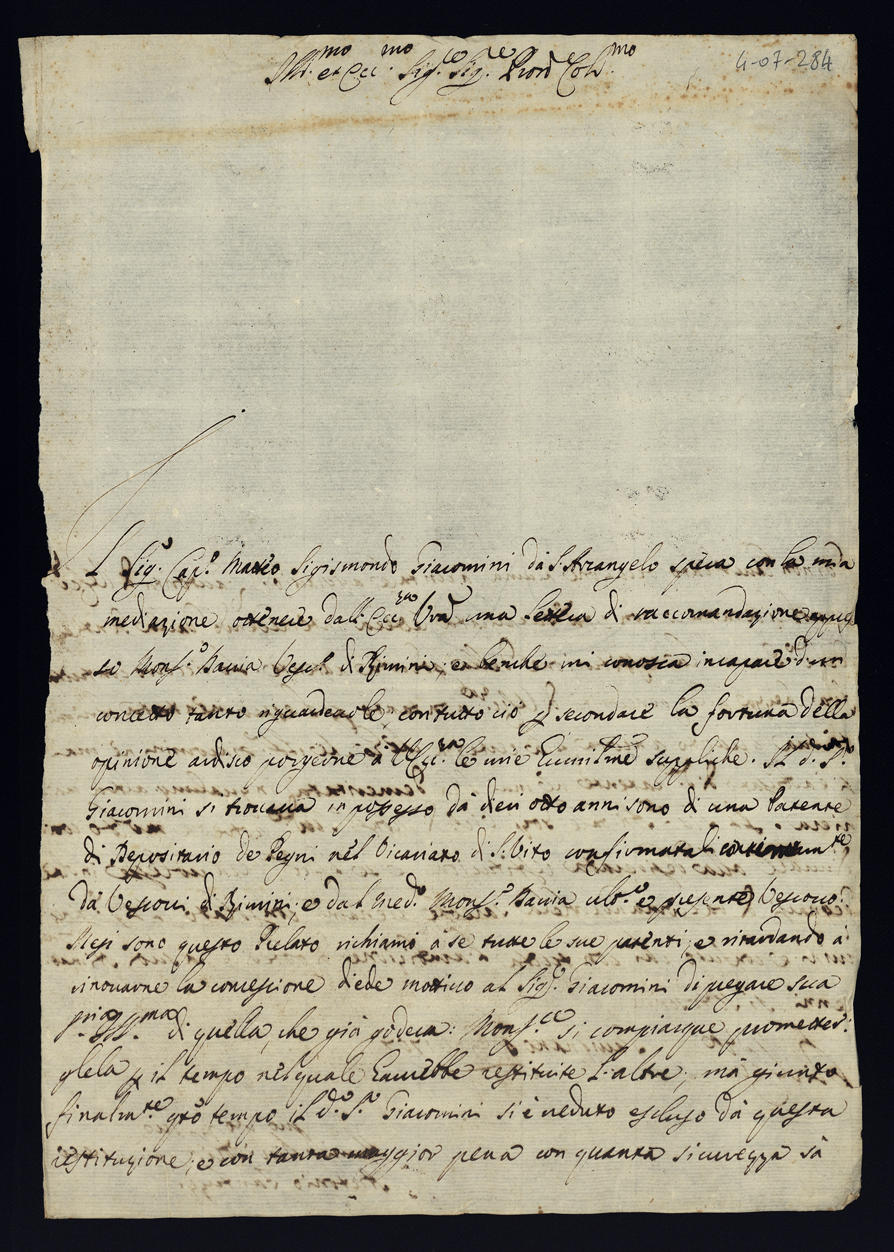 Ill.mo et Ecc.mo Sig.re Sig.re Pron Col.mo
4-07-284
Il Sig.r Cap.o Matteo Sigismondo Giacomini da S. Arcangelo spera con la mia
mediazione ottenere dall' Ecc.za V.ra una lettera di raccomandazione appres
so Mons.r Davia Vesc.o di Rimini; e benche mi conosca incapace d'un
concetto tanto riguardevole, con tutto ciò p secondare la fortuna della
opinione ardisco porgerne à V. Ecc.za le mie humilme suppliche. Il d.o S.r
Giacomini si trovava in possesso da dieci otto anni sono di una Patente
di Depositario de Pegni nel Vicariato di S. Vito confirmatali
da Vescovi di Rimini, e dal med.o Mons.r Davia ult.o e presente Vescovo.
Mesi sono questo Prelato richiamò a se tutte le sue patenti, e ritardando à
rinovarne la concessione diede motivo al Sig.r Giacomini di pregare sua
di quella, che già godeva: Mons.re si compiacque prometter:
gliela p il tempo nel quale havrebbe restituite l'altre; mà giunto
finalm.te q.to tempo il d.o S.r Giacomini si è veduto escluso dà questa
restituzione; e con tanta maggior pena con quanta sicurezza sà